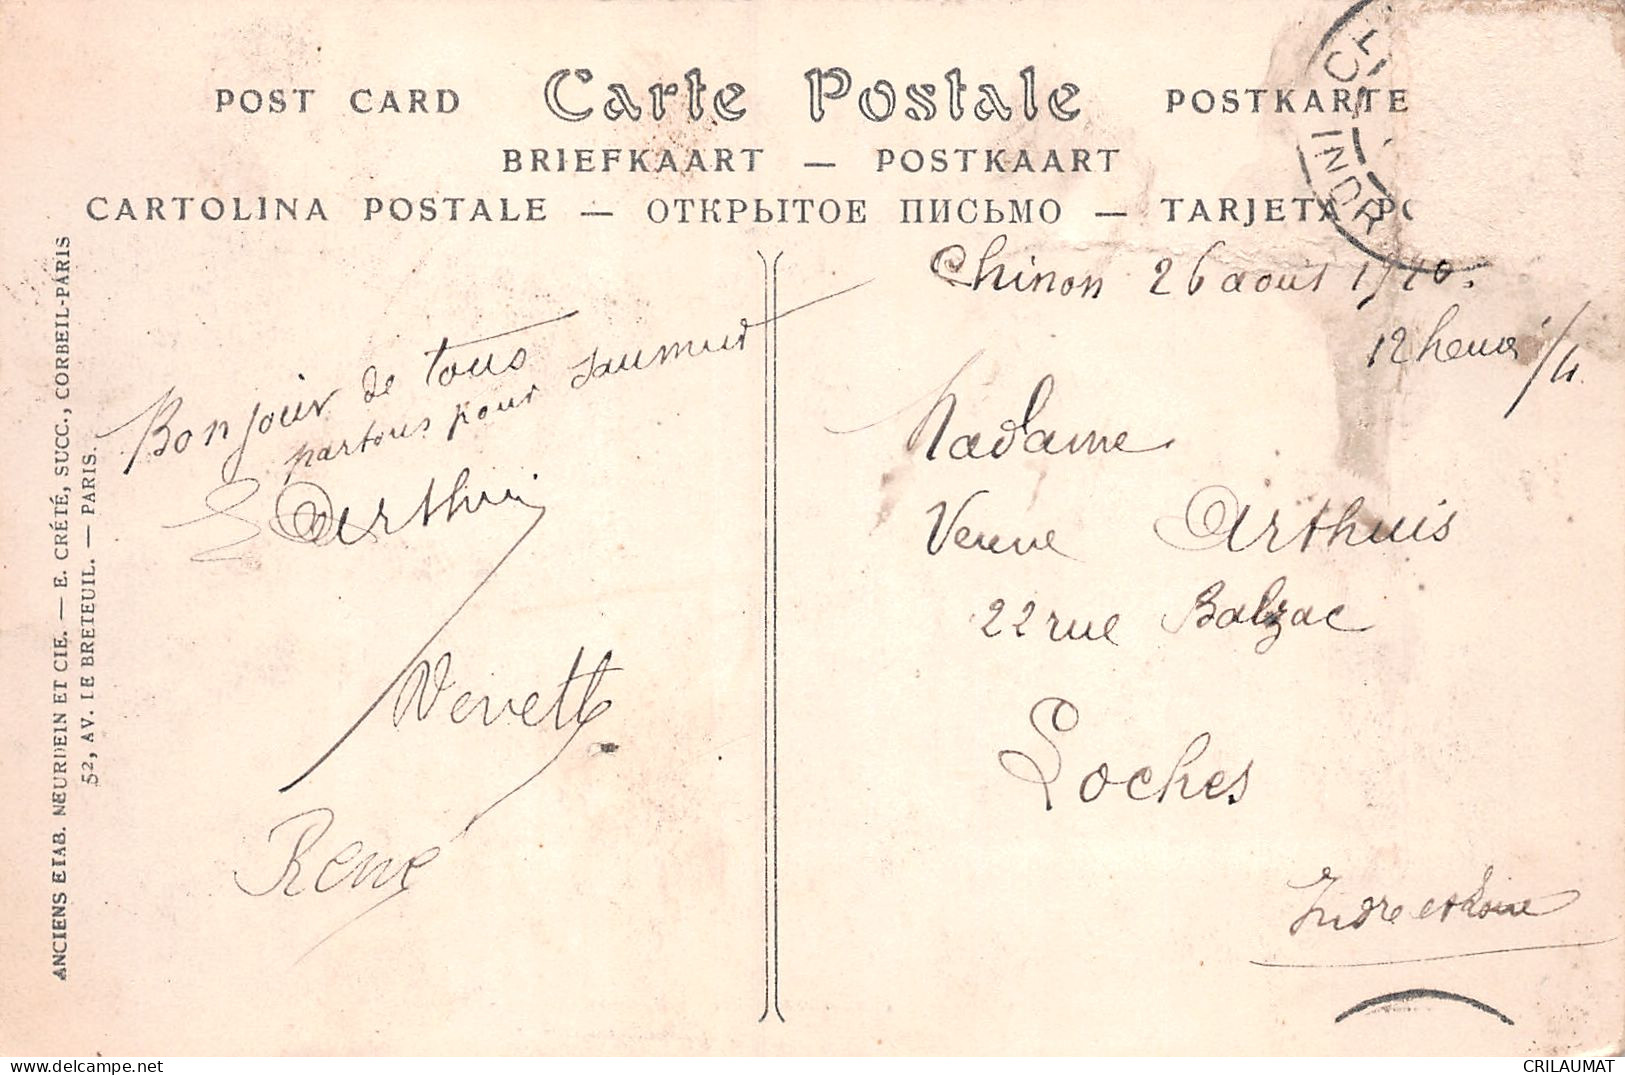 POST CARD Carte Postale POSTKARTE
BRIEFKAART — POSTKAART
CARTOLINA POSTALE — ОТКРЫТОЕ ПИСЬМО — TARJETA PO
CH
INDR
ANCIENS ETAB. NEURDEIN ET CIE. — E. CRÉTÉ, SUCC., CORBEIL-PARIS
52, AV. DE BRETEUIL. — PARIS.
Bonjour de tous
partons pour Saumur
Arthuis
René
Chinon 26 aout 1920.
12 heures 1/4
Madame
Veuve Arthuis
22 rue Balzac
Loches
Indre et Loire
www.delcampe.net
CRILAUMAT